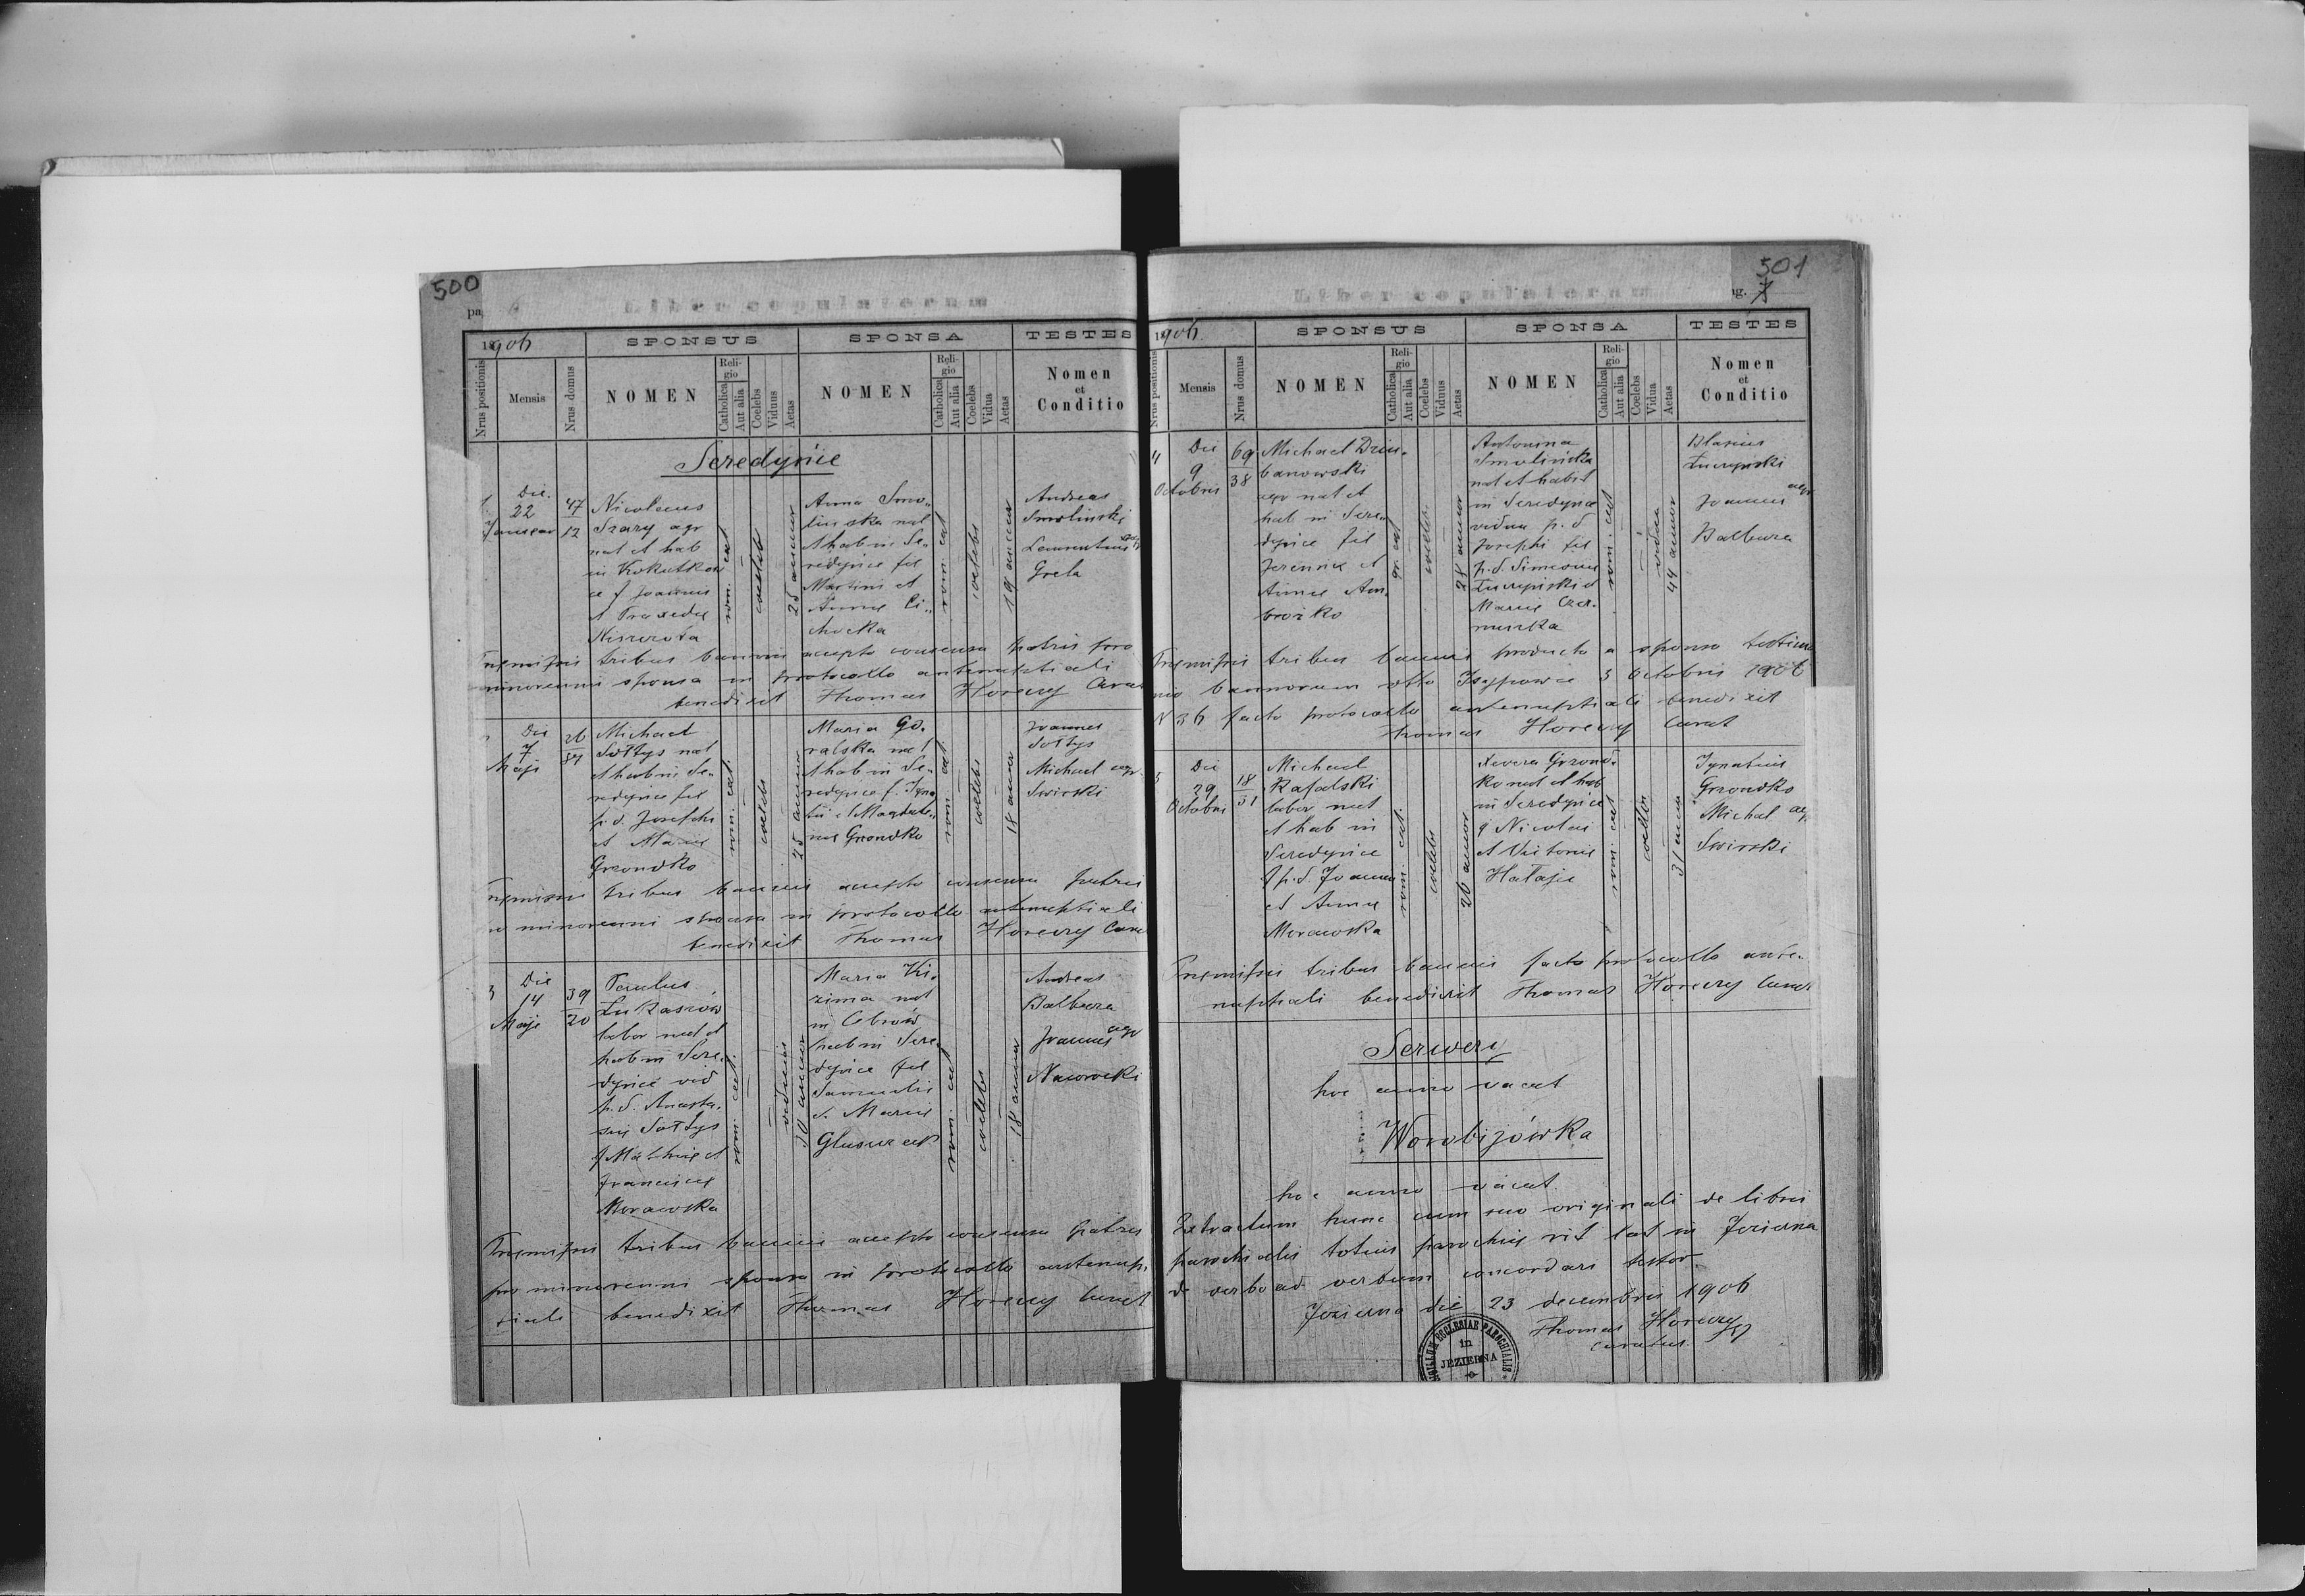 500
pa
Liber copulatorum
1906
SPONSUS
SPONSA
TESTES
Nrus positionis
Mensis
Nrus domus
NOMEN
Religio
Catholica
Aut alia
Coelebs
Viduus
Aetas
NOMEN
Religio
Catholica
Aut alia
Coelebs
Vidua
Aetas
Nomen
et
Conditio
Seredyńce
1
Die
22
Januar
47
12
Nicolaus
Szary agr
nat et hab
in Kokutkow
ce f Joannis
et Praxedae
Niszczota
rom. cat
coelebs
25 annor
Anna Smo„
lińska nat
et hab in Se„
redyńce fil
Martini et
Annae Ci„
chocka
rom. cat
coelebs
19 annor
Andreas
Smolinski
Laurentius agr
Grela
Praemissis tribus bannis accepto consensu patris pro
minorenni sponsa in protocollo antenuptiali
benedixit Thomas Horeczy Curat
Die
7
Maji
26
87
Michael
Sołtys nat
et hab in Se„
redyńce fil
p. d. Josephi
et Mariae
Grzondko
rom. cat.
coelebs
25 annor
Maria Gó„
ralska nat
et hab in Se„
redyńce f. Igna
tii et Magdale„
nae Grzondko
rom. cat
coelebs
18 annor
Joannes
Sołtys
Michael agr.
Swirski
Praemissis tribus bannis accepto consensu patris
pro minorenni sponsa in protocollo antenuptiali
benedixit Thomas Horeczy Curat
3
Die
14
Maji
39
20
Paulus
Łukasów
labor nat et
hab in Sere„
dyńce vid
p. d. Anasta„
siae Sołtys
f Mathiae et
Franciscae
Morawska
rom. cat.
viduus
30 annor
Maria Ki„
zima nat
in Cebrów
hab in Sere„
dyńce fil
Samuelis
et Mariae
rom. cat
coelebs
18 annor
Andreas
Balbuza
Joannes agr
Nawrocki
Praemissis tribus bannis accepto consensu patris
pro minorenni sponsa in protocollo antenup„
tiali benedixit Thomas Horeczy Curat
501
ag. 7
Liber copulatorum
1906
SPONSUS
SPONSA
TESTES
Nrus positionis
Mensis
Nrus domus
NOMEN
Religio
Catholica
Aut alia
Coelebs
Viduus
Aetas
NOMEN
Religio
Catholica
Aut alia
Coelebs
Vidua
Aetas
Nomen
et
Conditio
4
Die
9
Octobris
69
38
Michael Dziu„
banowski
agr nat et
hab in Sere„
dyńce fil
Jeremiae et
Annae Am„
brożko
gr. cat
coelebs
28 annor
Antonina
Smolińska
nat et habit
in Seredyńce
vidua p. d
Josephi fil
p. d. Simeonis
Łuczyński et
Mariae Czer„
rom. cat
vidua
44 annor
Blasius
Łuczyński
Joannes agr
Balbuza
Praemissis tribus bannis producto a sponso testimo
nio bannorum dtto Isypowce 5 Octobris 1906
N 36 facto protocollo antenuptiali benedixit
Thomas Horeczy Curat
5
Die
29
Octobris
18
51
Michael
Rafalski
labor nat
et hab in
Seredyńce
f p. d. Joannis
et Annae
Morawska
rom. cat.
coelebs
26 annor
Xavera Grzond„
ko nat et hab
in Seredyńce
f Nicolai
et Victoriae
Hałajie
rom. cat
coelebs
31 annor
Ignatius
Grzondko
Michal agr
Swirski
Praemissis tribus bannis facto protocollo ante„
nuptiali benedixit Thomas Horeczy Curat
Serwery
hoc anno vacat
Worobijówka
hoc anno vacat.
Extractum hunc cum suo originali de libris
parochialis totius parochiae rit lat in Jezierna
de verbo ad verbum concordari testor.
Jezierna die 23 decembris 1906
Thomas Horeczy
curatus.
SIGILLUM ECCLESIAE PAROCHIALIS
in
JEZIERNA